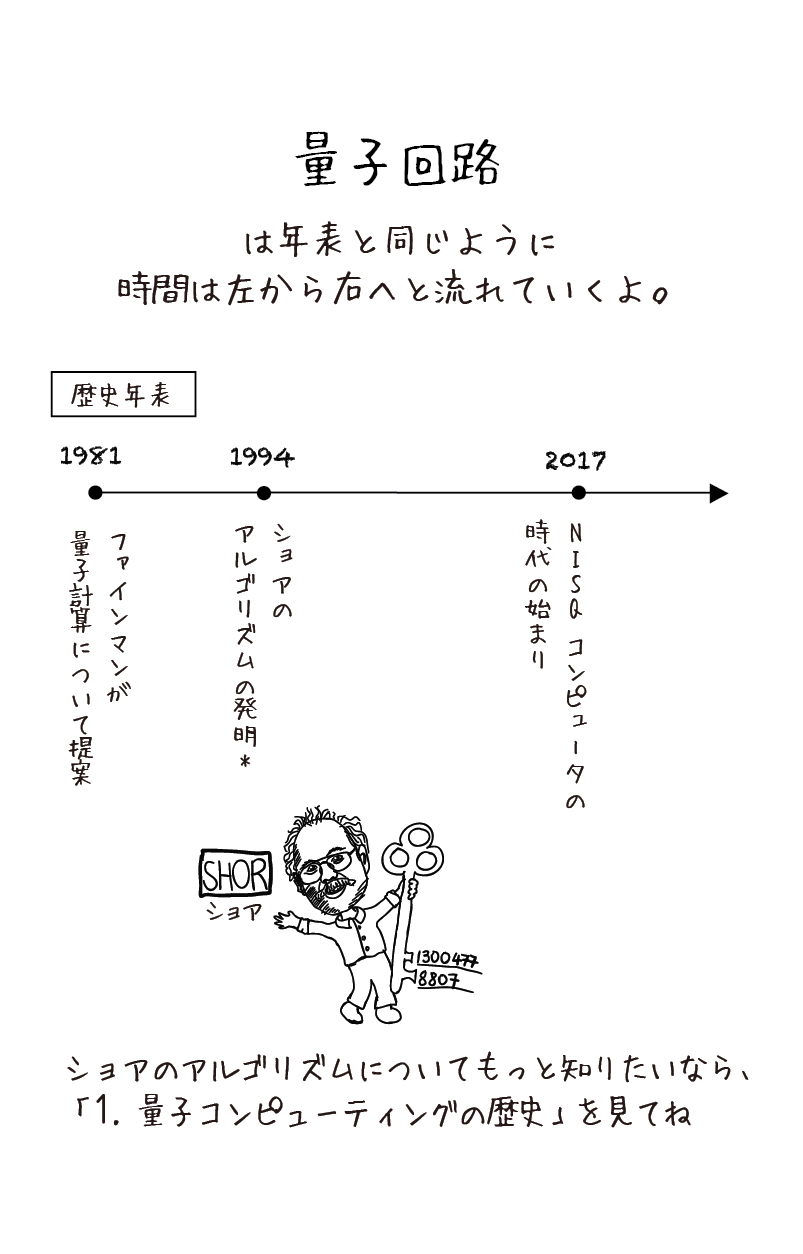 量子回路
は年表と同じように
時間は左から右へと流れていくよ。
歴史年表
1981
1994
2017
ファインマンが
量子計算について提案
ショアの
アルゴリズムの発明*
NISQ コンピュータの
時代の始まり
SHOR
ショア
1300477
8807
ショアのアルゴリズムについてもっと知りたいなら、
「1. 量子コンピューティングの歴史」を見てね